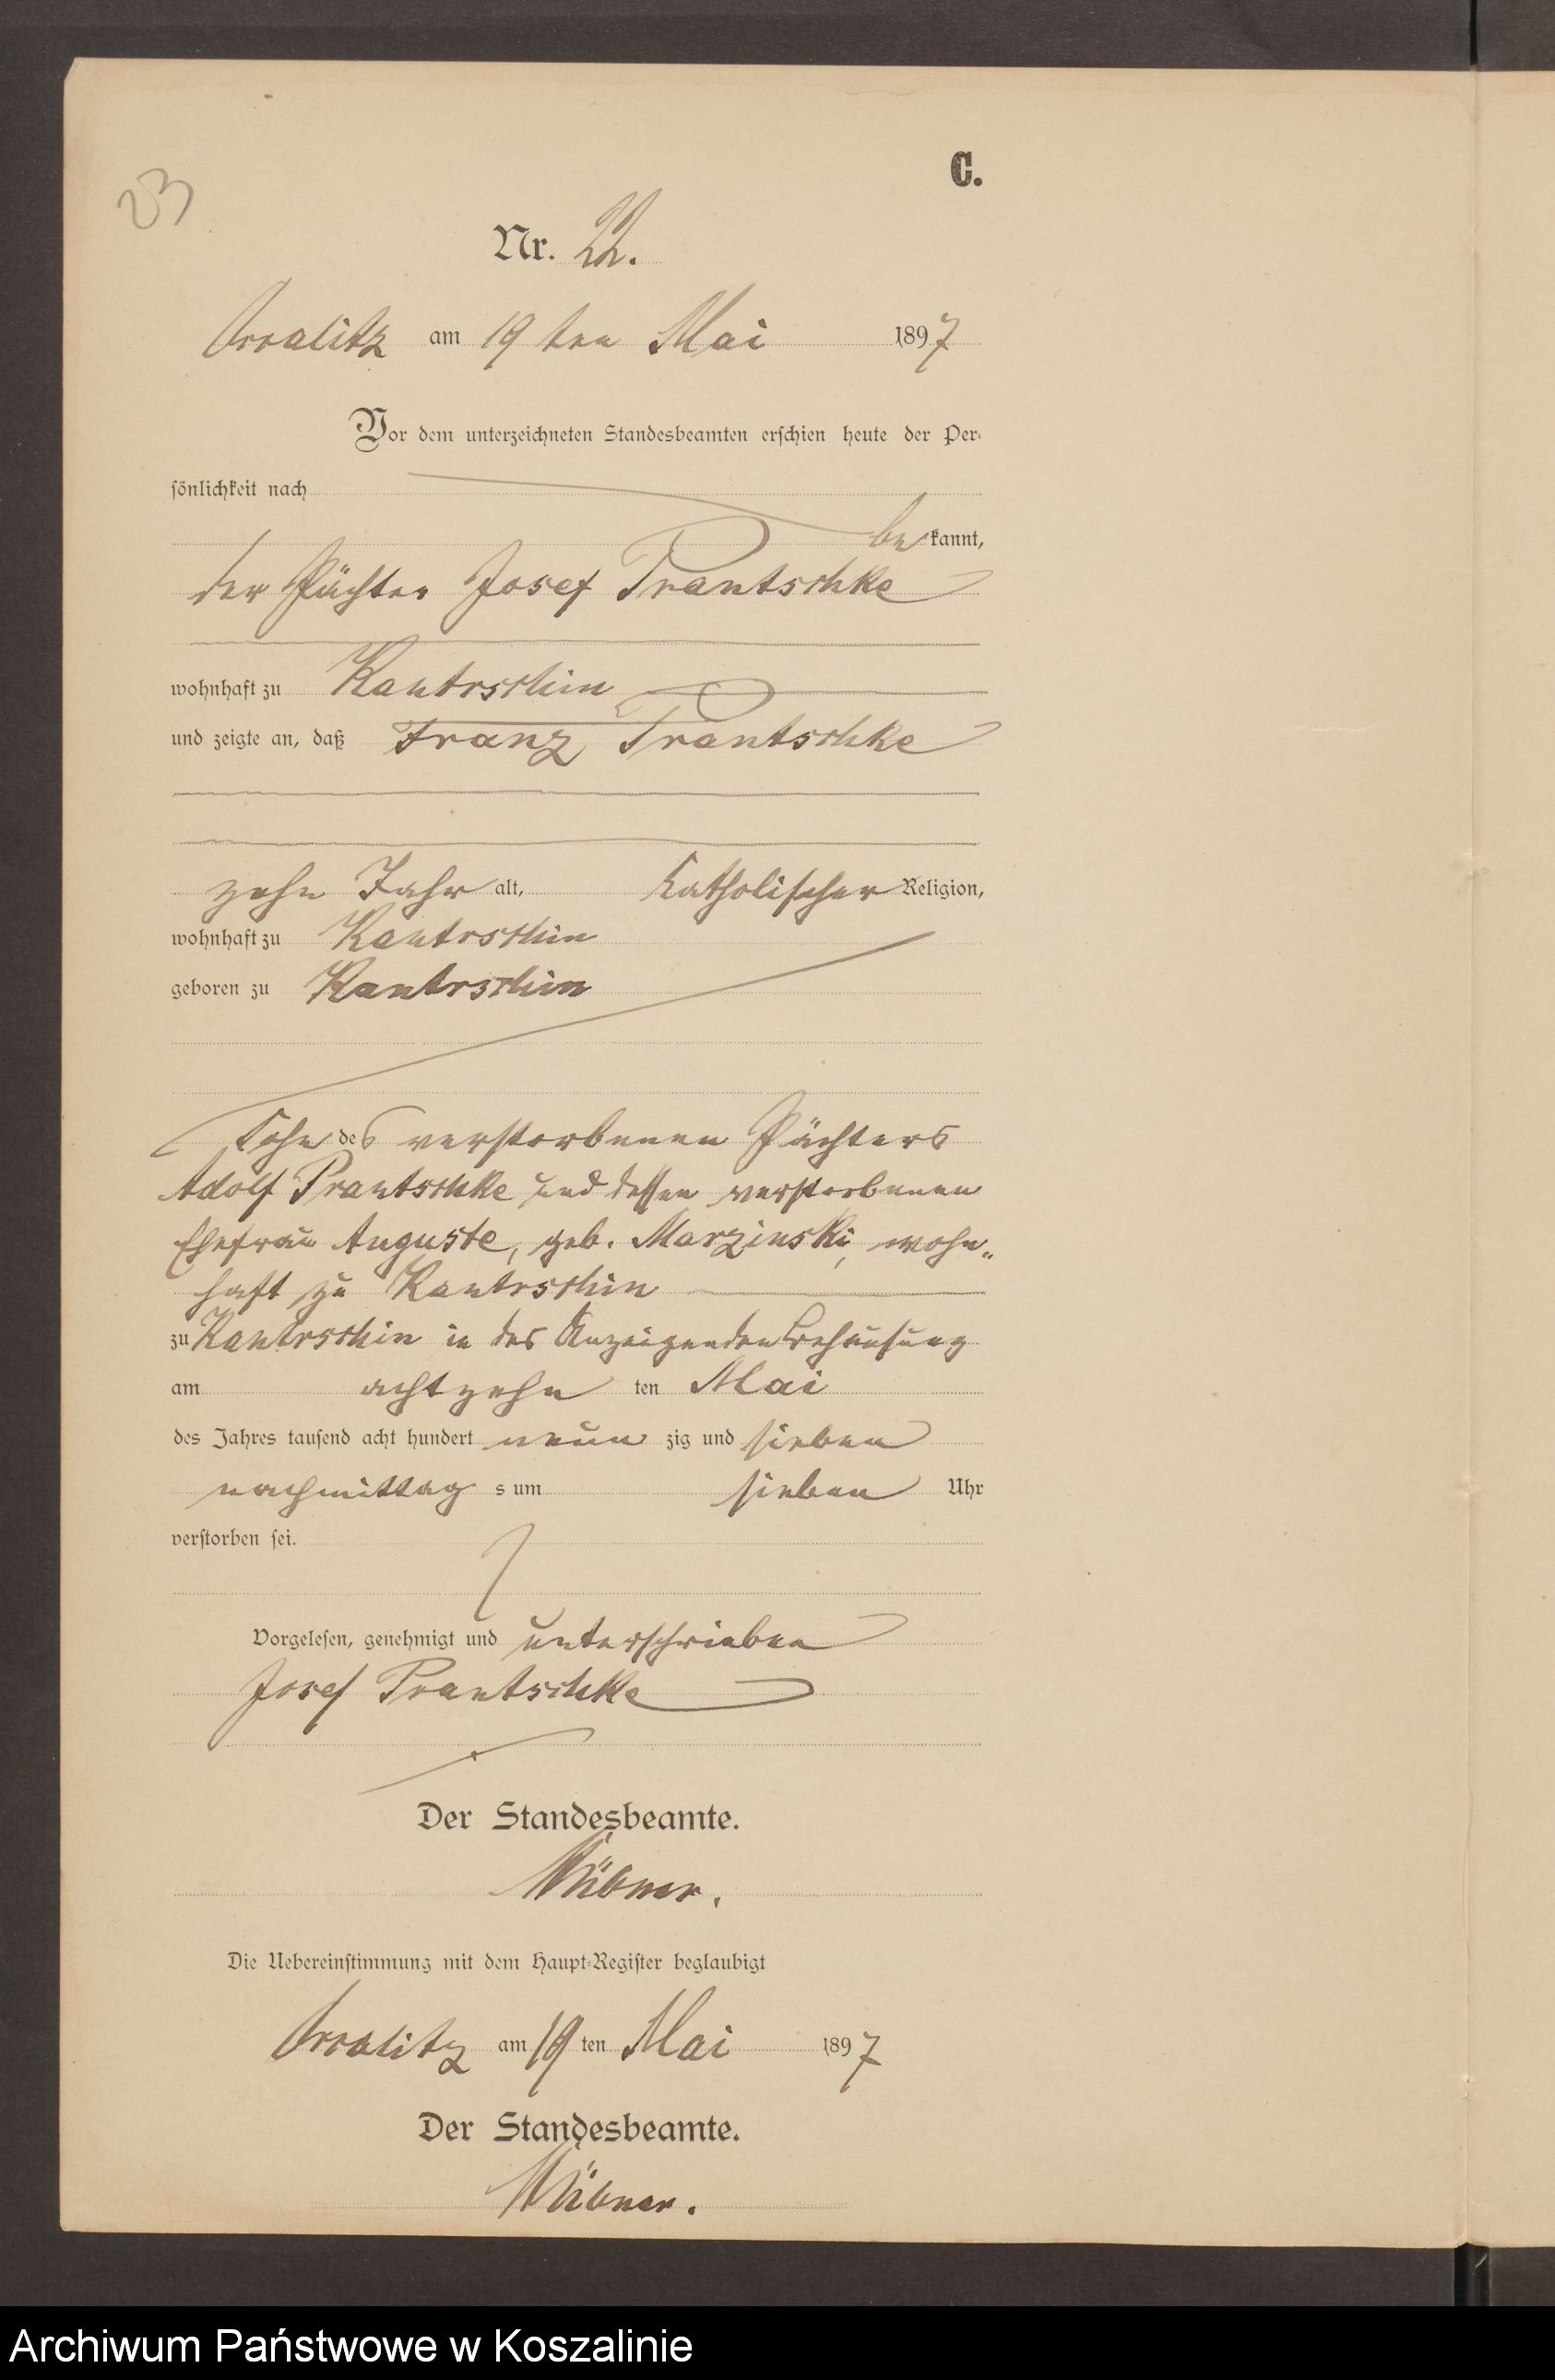 23
C.
Nr. 22.
am 19 ten Mai 1897
Vor dem unterzeichneten Standesbeamten erschien heute der Per-
sönlichkeit nach
bekannt,
der Pächter Josef Prantschke
wohnhaft zu Kantrschin
und zeigte an, daß Franz Prantschke
zehn Jahr alt, katholischer Religion,
wohnhaft zu Kantrschin
geboren zu Kantrschin
Sohn des verstorbenen Pächters
Adolf Prantschke und dessen verstorbenen
Ehefrau Auguste, geb. Marzinski, wohn„
haft zu Kantrschin
zu Kantrschin in des Anzeigenden Behausung
am achtzehn ten Mai
des Jahres tausend acht hundert neun zig und sieben
nachmittag s um sieben Uhr
verstorben sei.
Vorgelesen, genehmigt und unterschrieben
Josef Prantschke
Der Standesbeamte.
Die Uebereinstimmung mit dem Haupt-Register beglaubigt
am 19 ten Mai 1897
Der Standesbeamte.
Archiwum Państwowe w Koszalinie